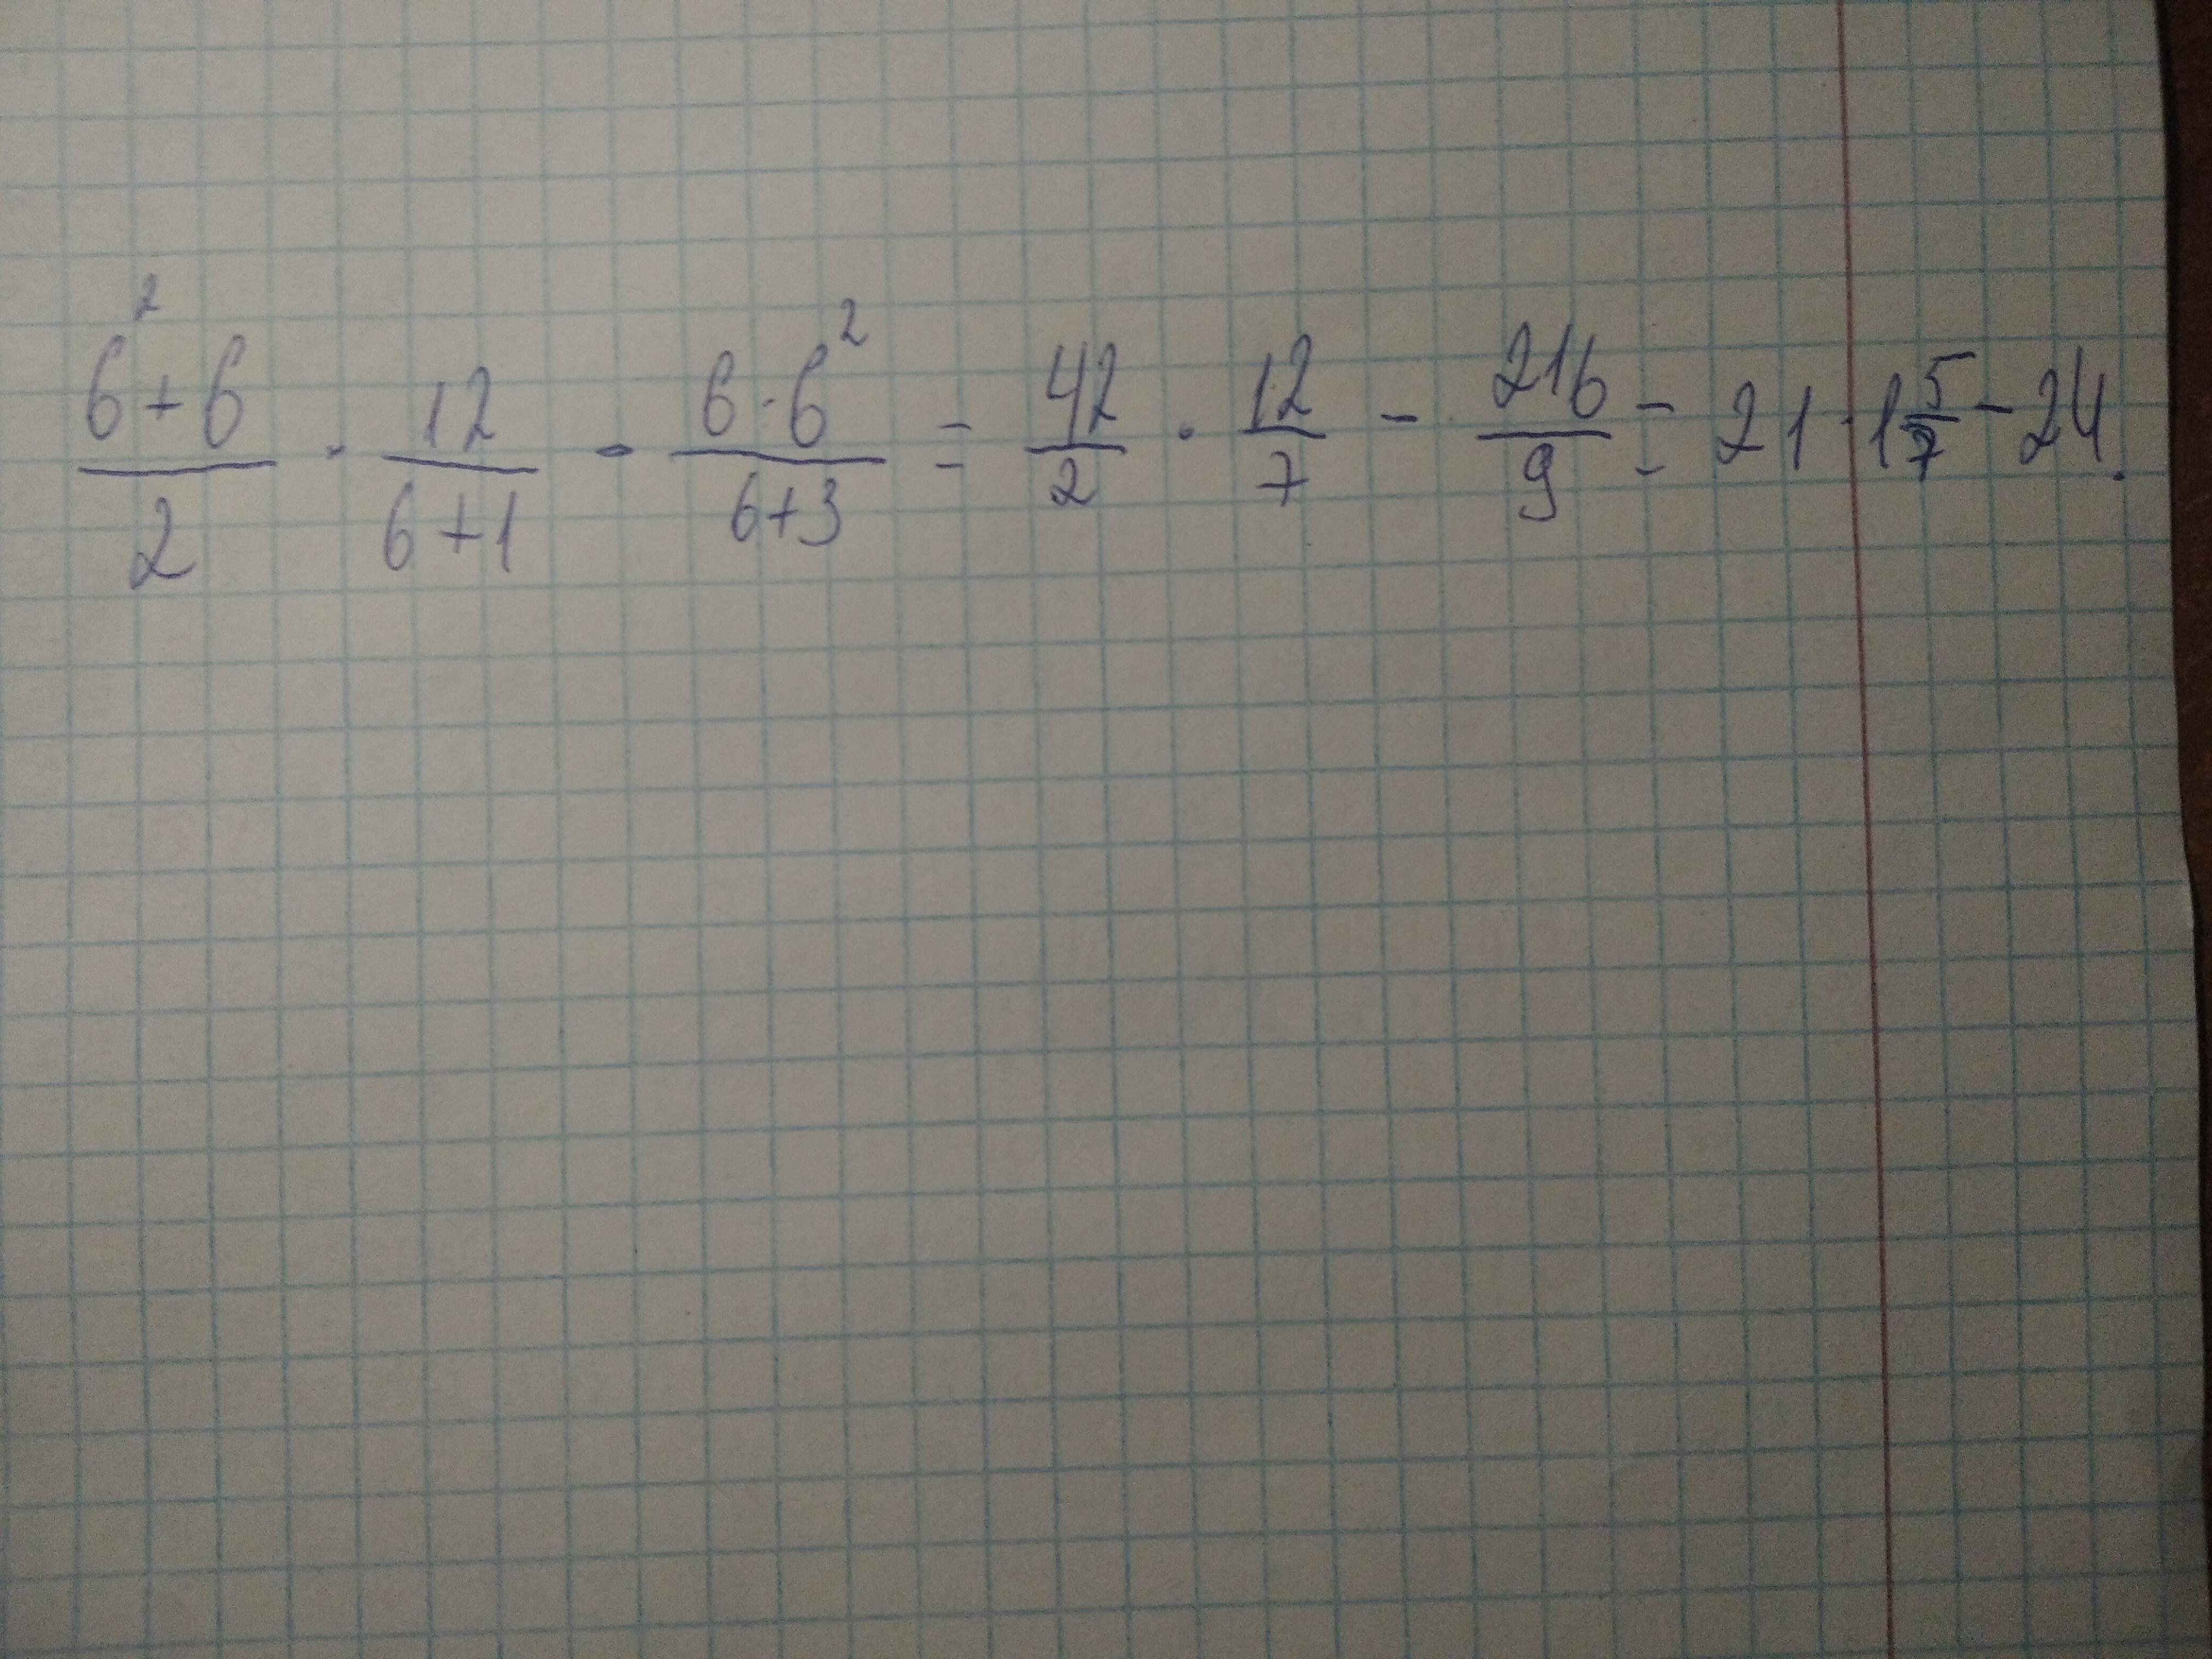 (6² + 6)/2 · 12/(6+1) - (6·6²)/(6+3) = 42/2 · 12/7 - 216/9 = 21 · 1 5/7 - 24.